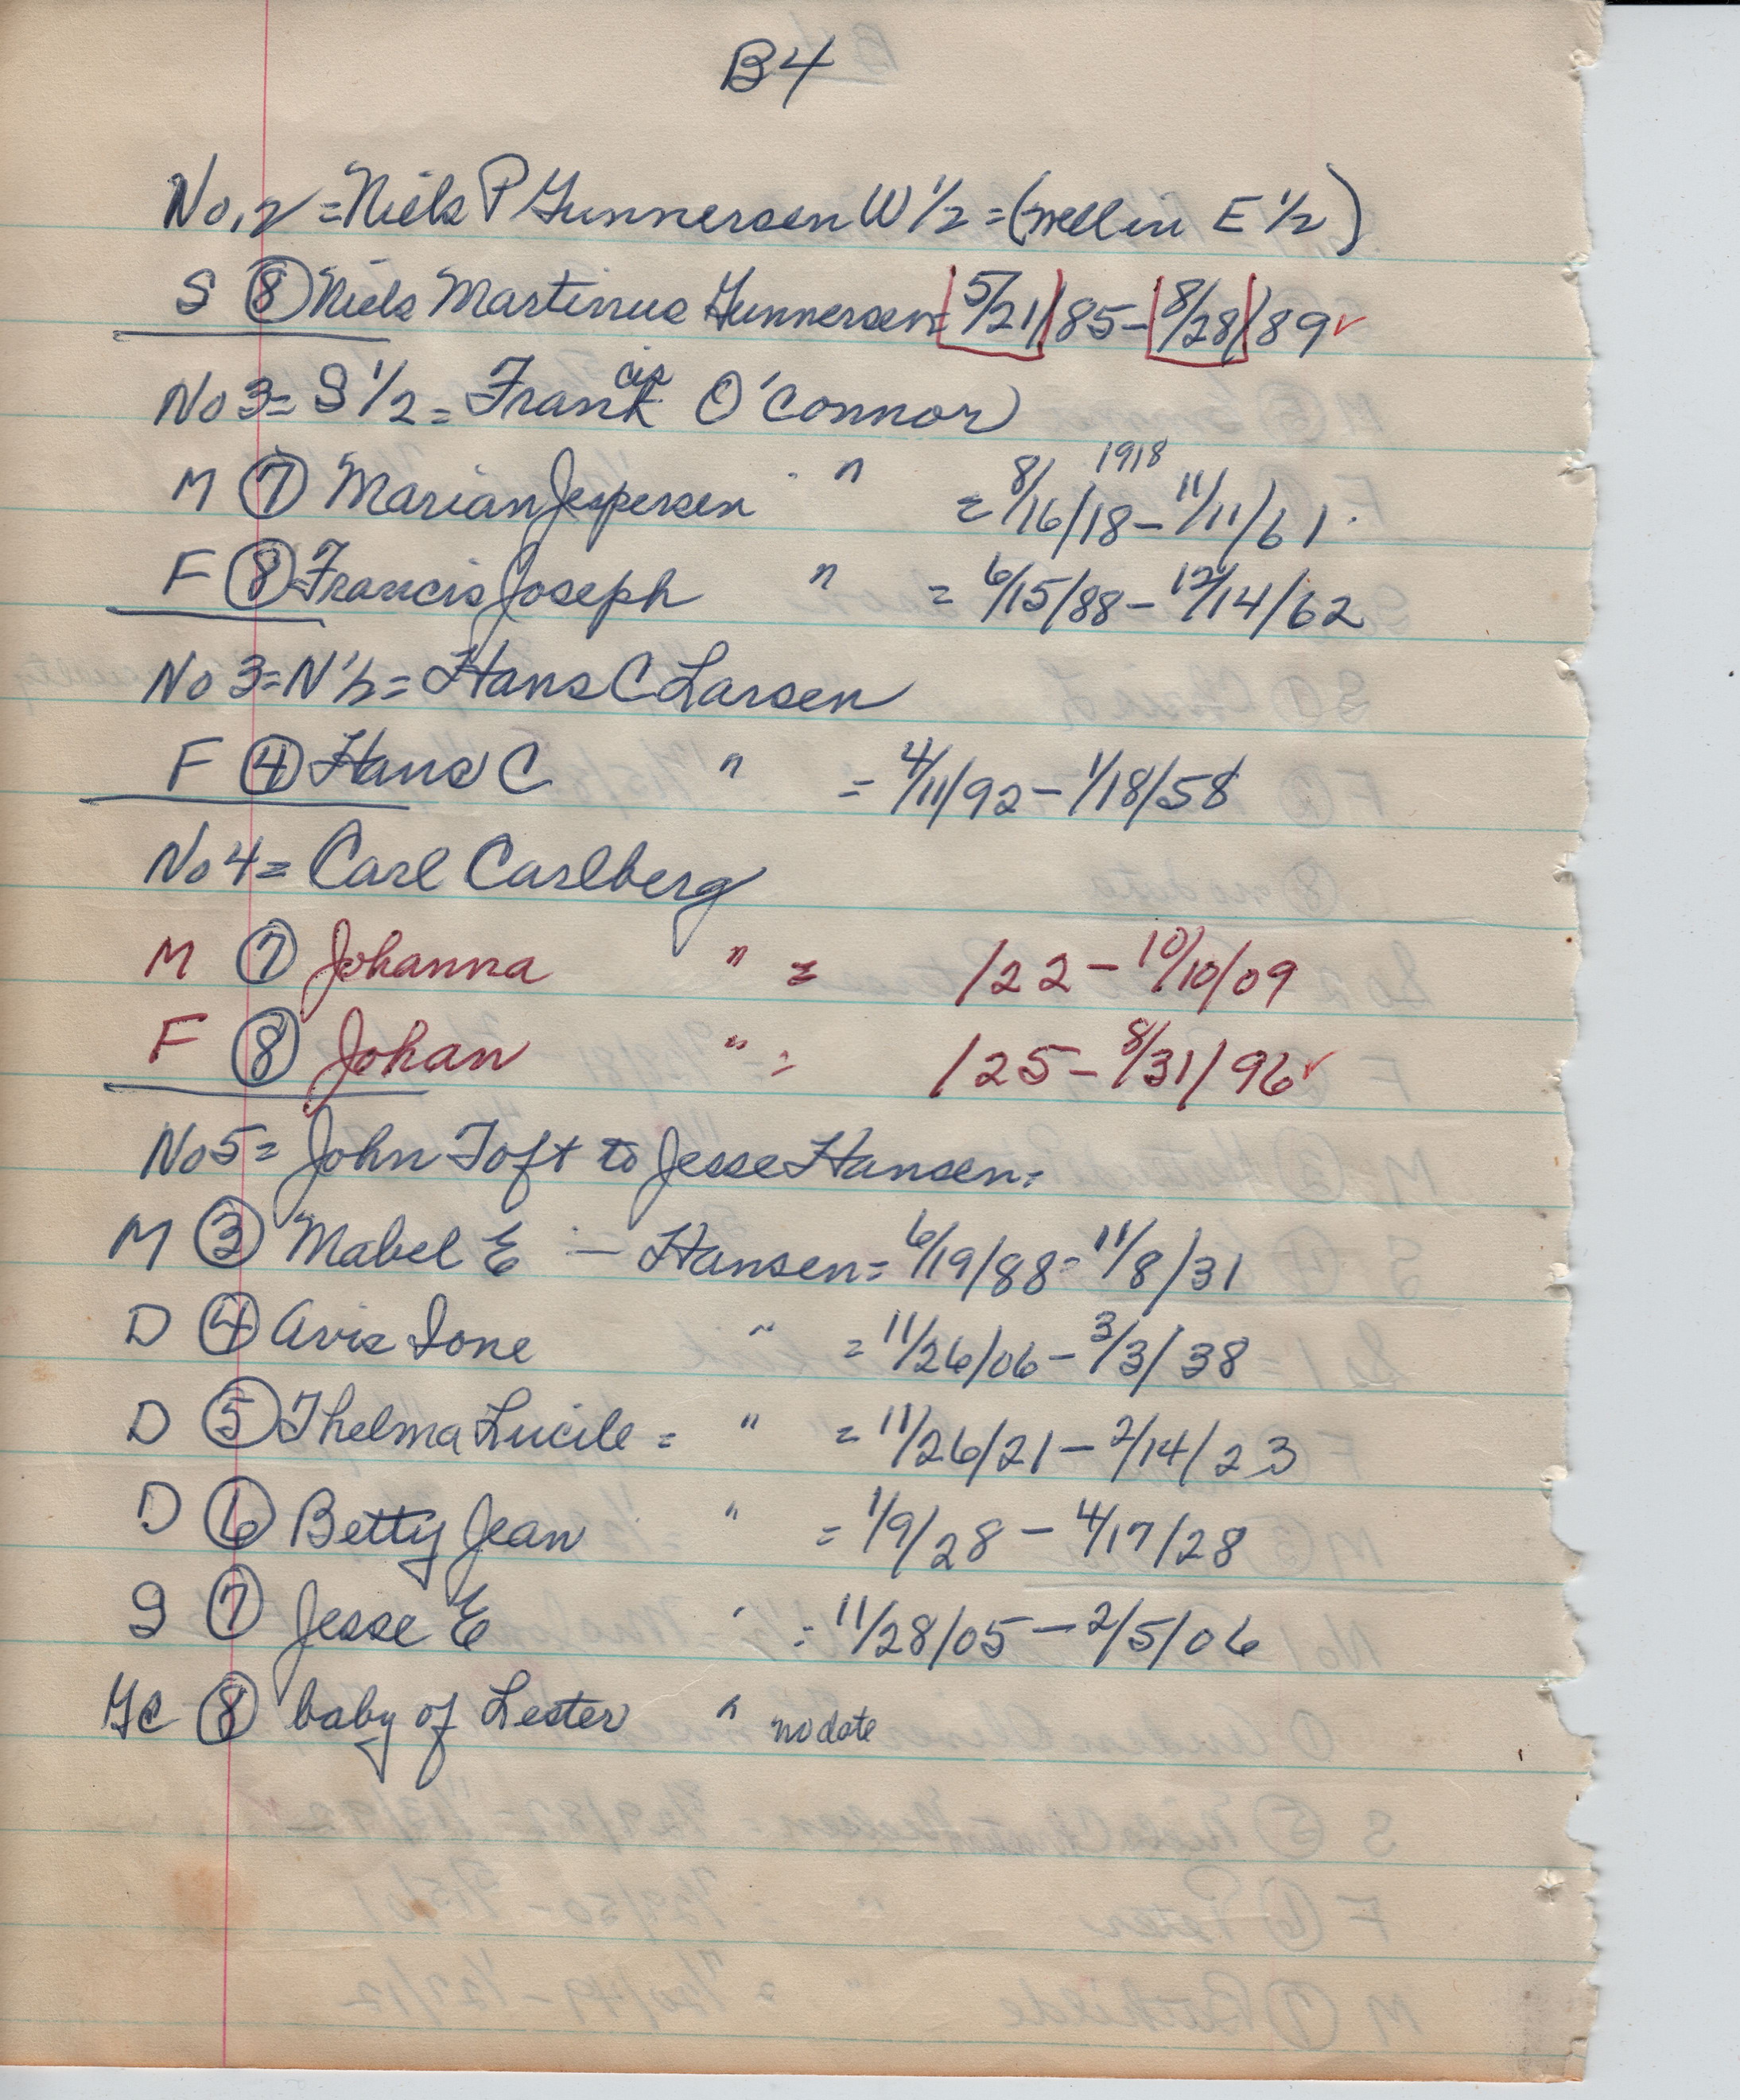 B4
No. 2 = Niels P Gunnersen W 1/2 = (well in E 1/2)
S 8 Niels Martinus Gunnersen = 5/21/85 - 8/28/89 ✓
No 3 = S 1/2 = Francis O'Connor
M 7 Marian Jespersen " = 8/16/18 - 11/11/61 1918
F 8 Francis Joseph " = 6/15/88 - 12/14/62
No 3 = N 1/2 = Hans C Larsen
F 4 Hans C " = 4/11/92 - 1/18/58
No 4 = Carl Carlberg
M 7 Johanna " = /22 - 10/10/09
F 8 Johan " = /25 - 8/31/96 ✓
No 5 = John Toft to Jesse Hansen =
M 3 Mabel E - Hansen = 6/19/88 - 11/8/31
D 4 Avis Ione " = 11/26/06 - 3/3/38
D 5 Thelma Lucile = " = 11/26/21 - 2/14/23
D 6 Betty Jean " = 1/9/28 - 4/17/28
S 7 Jesse E " = 11/28/05 - 2/5/06
GC 8 baby of Lester " no date